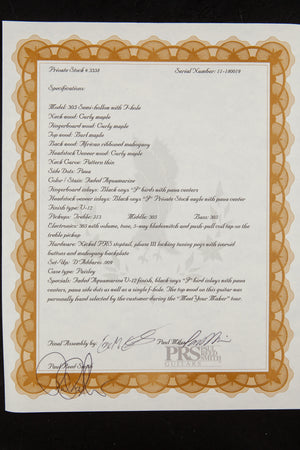 Private Stock # 3338
Serial Number: 11-180019
Specifications:
Model: 305 Semi-hollow with F-hole
Neck wood: Curly maple
Fingerboard wood: Curly maple
Top wood: Burl maple
Back wood: African ribboned mahogany
Headstock Veneer wood: Curly maple
Neck Carve: Pattern thin
Side Dots: Paua
Color / Stain: Faded Aquamarine
Fingerboard inlays: Black onyx "J" birds with paua centers
Headstock veneer inlays: Black onyx "J" Private Stock eagle with paua center
Finish type: U-12
Pickups: Treble: 305 Middle: 305 Bass: 305
Electronics: 305 with volume, tone, 5-way bladeswitch and push-pull coil tap on
the treble pickup
Hardware: Nickel PRS stoptail, phase III locking tuning pegs with
buttons and mahogany backplate
Set-Up: D'Addario .009
Case type: Paisley
Specials: Faded Aquamarine U-12 finish, black onyx "J" bird inlays with paua
centers, paua side dots as well as a single f-hole. The top wood on this guitar was
personally hand selected by the customer during the "Meet Your Maker" tour.
Final Assembly by:
Paul Miles
PRS PAUL REED SMITH
GUITARS
Paul Reed Smith